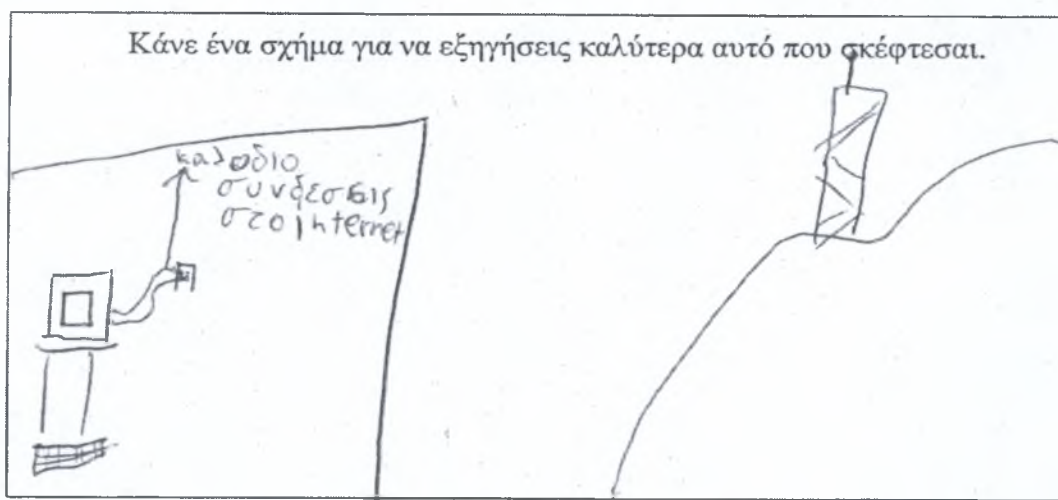 Κάνε ένα σχήμα για να εξηγήσεις καλύτερα αυτό που σκέφτεσαι.
καλοδιο
συνδεσεις
στο internet